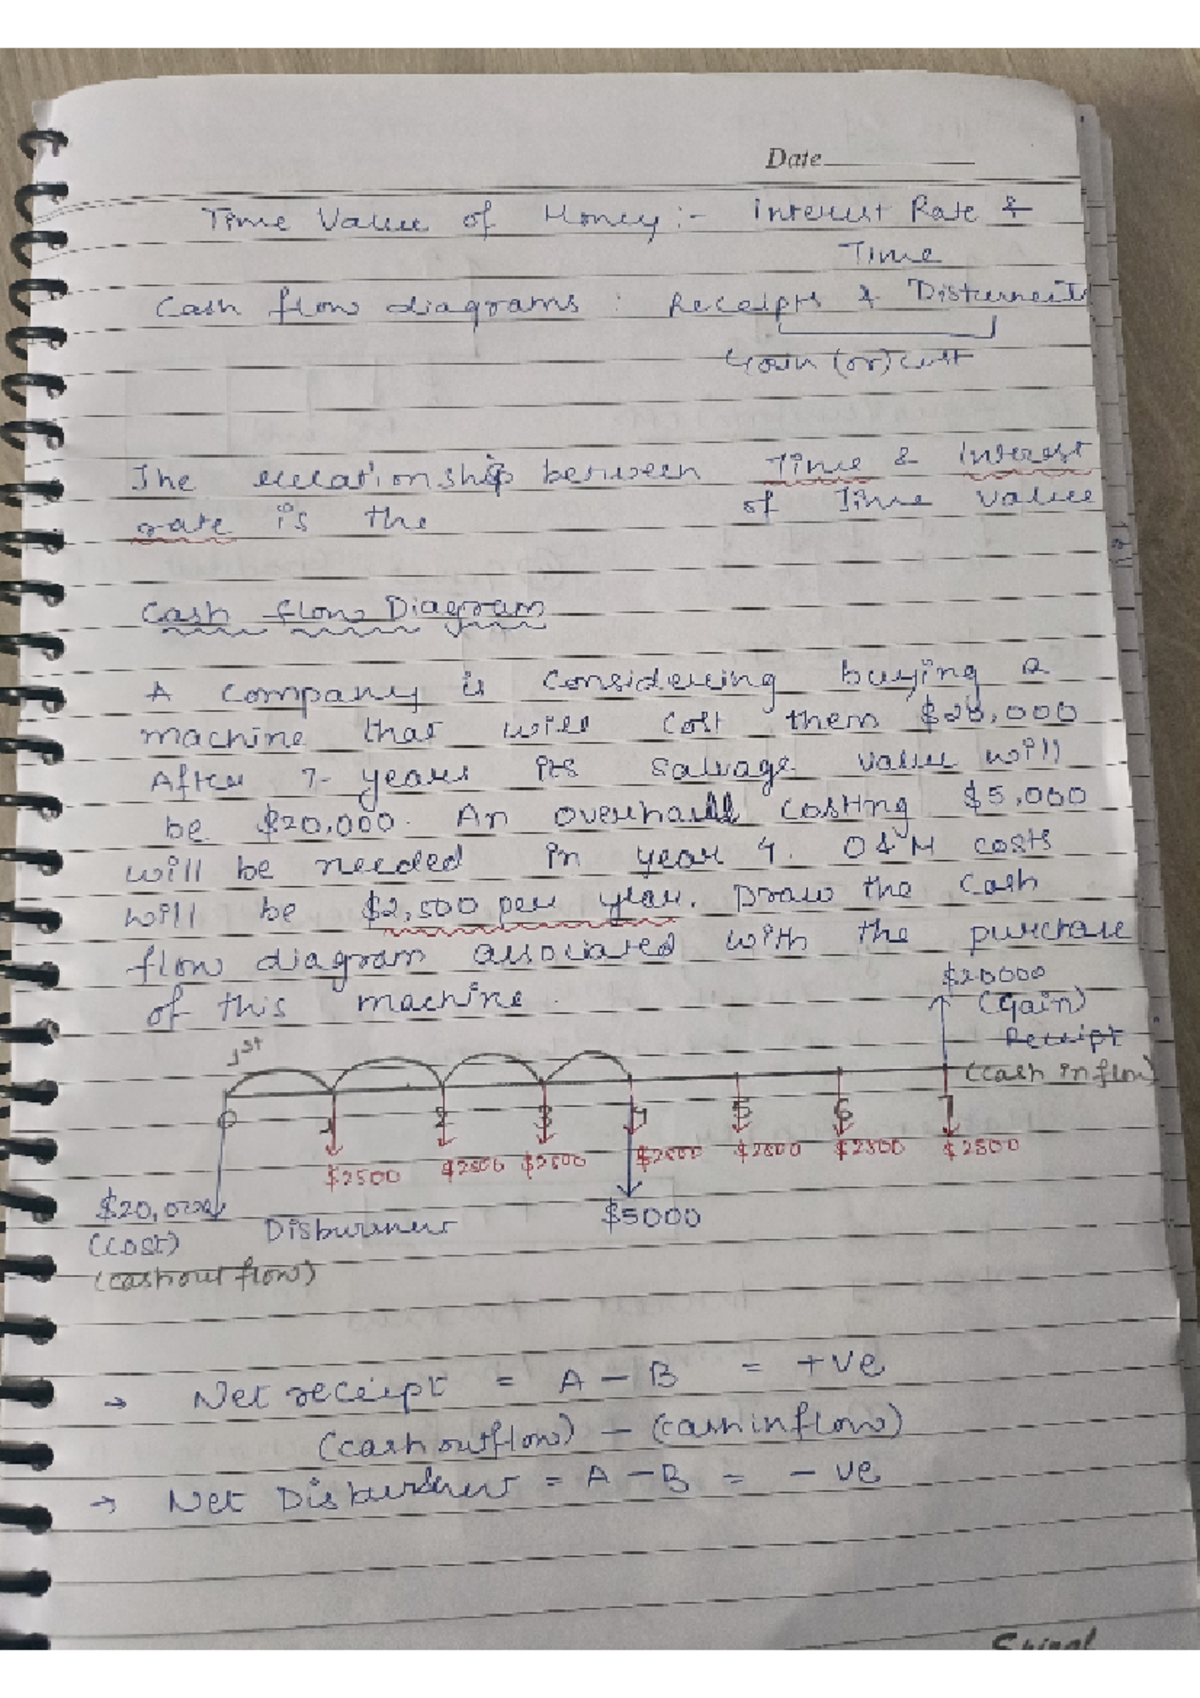 Date
Time Value of Money :- Interest Rate &
Time
Cash flow diagrams : Receipts & Disturments
Gain (or) cost
The relationship between Time & Interest
rate is the of Time value
Cash flow Diagram
A company is considering buying a
machine that will cost them $20,000
After 7 years its salvage value will
be $20,000. An overhaul costing $5,000
will be needed in year 4. O&M costs
will be $2,500 per year. Draw the cash
flow diagram associated with the purchase
of this machine.
$20000
(Gain)
Receipt
(cash inflow)
1st
0 1 2 3 4 5 6 7
$2500 $2500 $2500 $2500 $2500 $2500 $2500
$20,000
(cost)
(cash out flow)
Disburment
$5000
→ Net receipt = A - B = +ve
(cash outflow) - (cash inflow)
→ Net Disburment = A - B = - ve
Spiral